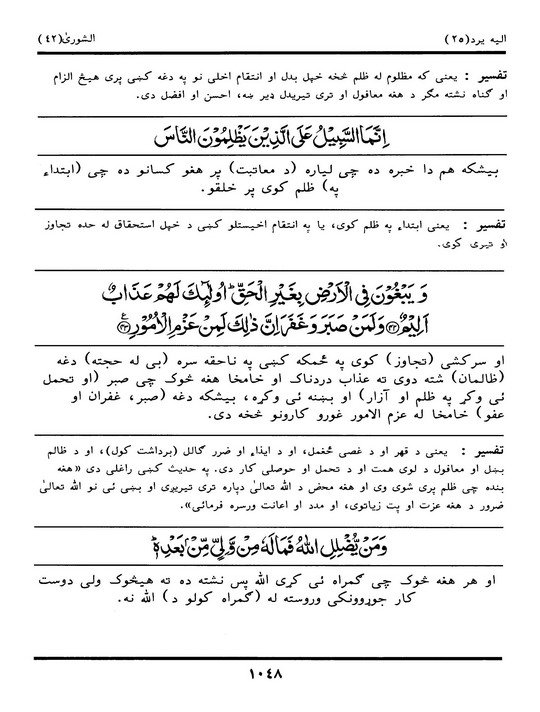 الیه یرد(۲۵) الشوریٰ(۴۲)
تفسیر : یعنی که مظلوم له ظلم څخه خپل بدل او انتقام اخلی نو په دغه کښی پری هیڅ الزام
او گناه نشته مگر د هغه معافول او تری تیریدل ډیر ښه، احسن او افضل دی.
اِنَّمَا السَّبِیْلُ عَلَی الَّذِیْنَ یَظْلِمُوْنَ النَّاسَ
بیشکه هم دا خبره ده چی لیاره (د معاتبت) پر هغو کسانو ده چی (ابتداء
په) ظلم کوی پر خلقو.
تفسیر : یعنی ابتداء په ظلم کوی، یا په انتقام اخیستلو کښی د خپل استحقاق له حده تجاوز
او تیری کوی.
وَ یَبْغُوْنَ فِی الْاَرْضِ بِغَیْرِ الْحَقِّ ؕ اُولٰٓئِكَ لَهُمْ عَذَابٌ
اَلِیْمٌ ﴿۴۲﴾ وَلَمَنْ صَبَرَ وَ غَفَرَ اِنَّ ذٰلِكَ لَمِنْ عَزْمِ الْاُمُوْرِ ﴿۴۳﴾
او سرکشی (تجاوز) کوی په ځمکه کښی په ناحقه سره (بی له حجته) دغه
(ظالمان) شته دوی ته عذاب دردناك او خامخا هغه څوك چی صبر (او تحمل
ئی وکړ په ظلم او آزار) او بښنه ئی وکړه، بیشکه دغه (صبر، غفران او
عفو) خامخا له عزم الامور غورو کارونو څخه دی.
تفسیر : یعنی د قهر او د غصی څغمل، او د ایذاء او ضرر گالل (برداشت کول)، او د ظالم
بښل او معافول د لوی همت او د تحمل او حوصلی کار دی. په حدیث کښی راغلی دی «هغه
بنده چی ظلم پری شوی وی او هغه محض د الله تعالیٰ دپاره تری تیریږی او بښی ئی نو الله تعالیٰ
ضرور د هغه عزت او پت زیاتوی، او مدد او اعانت ورسره فرمائی».
وَمَنْ یُّضْلِلِ اللّٰهُ فَمَا لَهٗ مِنْ وَّلِیٍّ مِّنْۢ بَعْدِهٖ ؕ
او هر هغه څوك چی گمراه ئی کړی الله پس نشته ده ته هیڅوك ولی دوست
کار جوړوونکی وروسته له (گمراه کولو د) الله نه.
۱۰۴۸